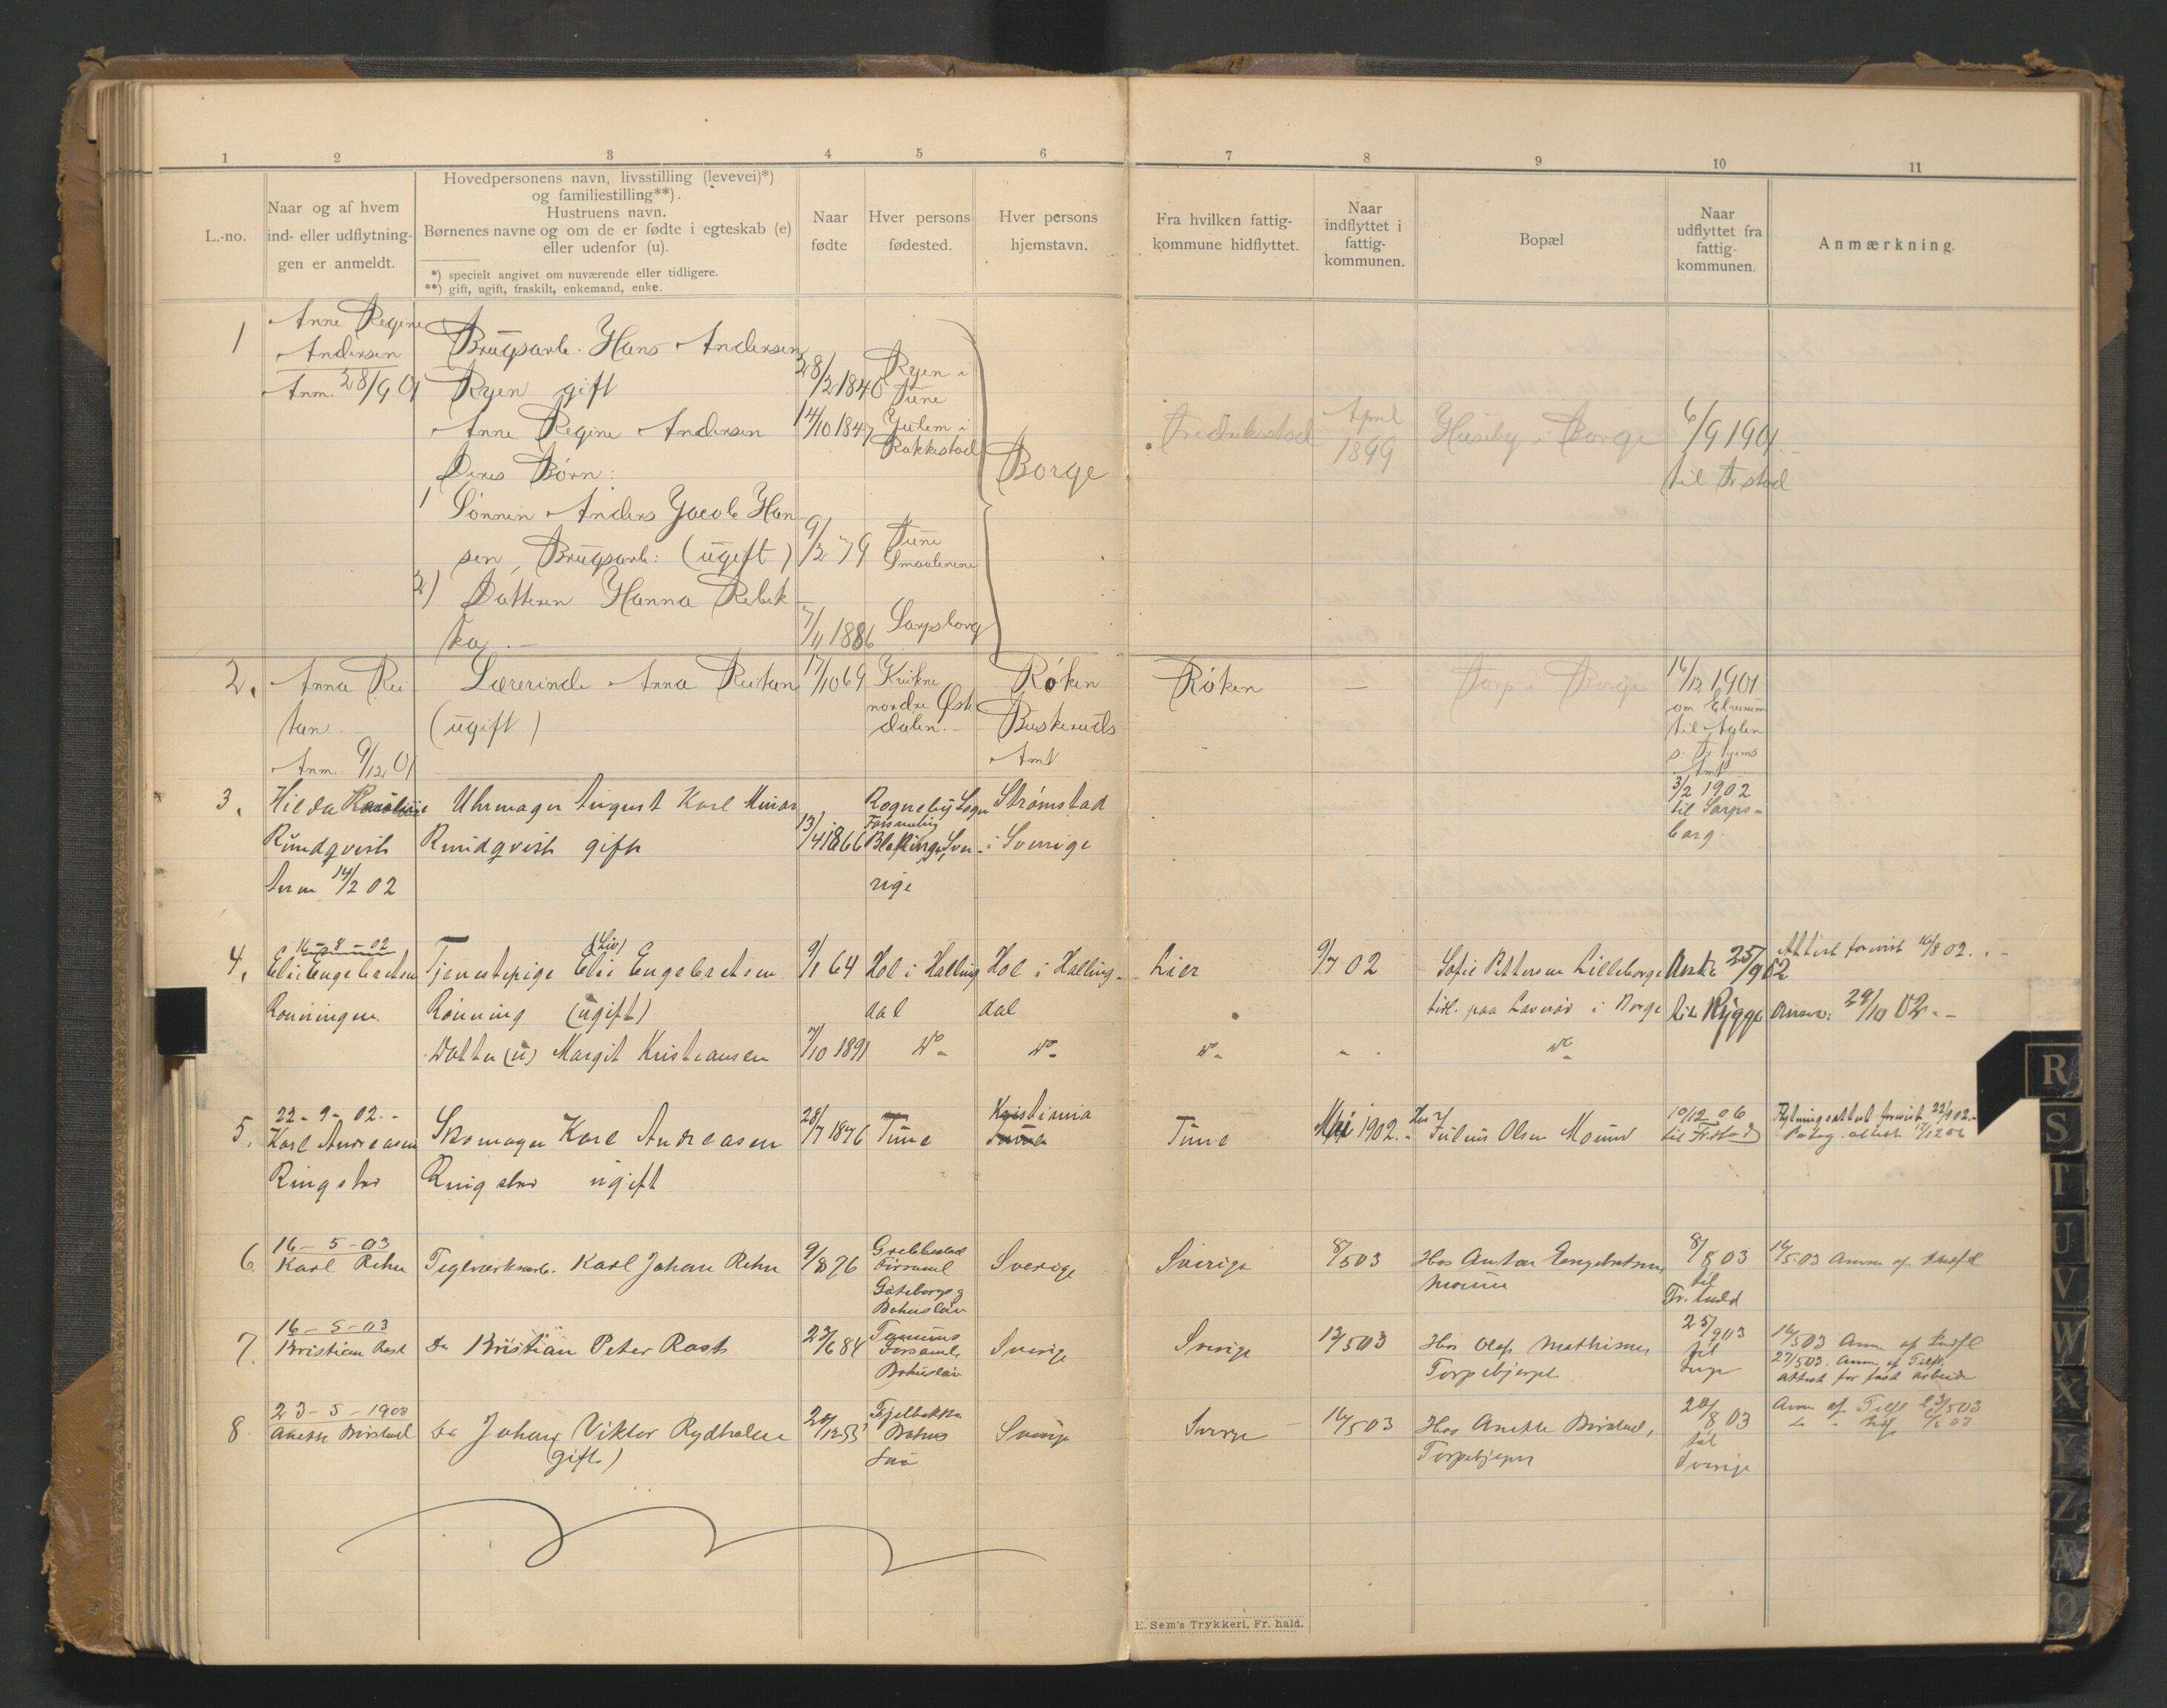 1 2 3 4 5 6 7 8 9 10 11
L.-no.
Naar og af hvem
ind- eller udflytning-
gen er anmeldt.
Hovedpersonens navn, livsstilling (levevei)*)
og familiestilling**).
Hustruens navn.
Børnenes navne og om de er fødte i egteskab (e)
eller udenfor (u).
*) specielt angivet om nuværende eller tidligere.
**) gift, ugift, fraskilt, enkemand, enke.
Naar
fødte
Hver persons
fødested.
Hver persons
hjemstavn.
Fra hvilken fattig-
kommune hidflyttet.
Naar
indflyttet i
fattig-
kommunen.
Bopæl
Naar
udflyttet fra
fattig-
kommunen.
Anmærkning.
1
Anne Regine
Andersen
Anm. 28/9 01
Brugsarb. Hans Andersen
Ryen gift
Anne Regine Andersen
Deres Børn:
1 Sønnen Anders Jacob Han
sen, Brugsarb: (ugift)
2) Datteren Hanna Rebek
ka
28/2 1840
14/10 1847
9/2 79
7/11 1886
Ryen i
Tune
i
Rakkestad
Tune
Smaalenene
Sarpsborg
Borge
Fredrikstad
April
1899
Huseby i Borge
6/9 1901
til Fr.stad
2.
Anna Rei
tan
Anm. 9/12 01
Lærerinde Anna Reitan
(ugift)
17/10 69
Kvikne
nordre Øst
dalen.
Røken
Buskeruds
Amt
Røken
—
Torp i Borge
16/12 1901
om Elverum
til
Amt
3.
Hilda
Rundqvist
Anm 14/2 02
Uhrmager August Karl
Rundqvist gift
13/4 1866
Rogneby Sogn
Bleking, Sve-
rige
Strømstad
i Sverige
3/2 1902
til Sarps-
borg.
4.
16-8-02
Eli Engebretsen
Rønningen.
Tjenestepige Eli Engebretsen
(Liv)
Rønning (ugift)
Datter (u) Margit Kristiansen
9/1 64
7/10 1891
Hol i Halling
dal
Do
Hol i Halling-
dal
Do
Lier
Do
9/7 02
Sofie Pettersen Lilleborge
i Borge
Do
25/9 02
til Rygge
Attest forevist 16/8 02.
29/10 02.-
5.
22-9-02.-
Karl Andreasen
Ringstad
Skomager Karl Andreasen
Ringstad ugift
28/7 1876
Tune
Kristiania
Tune
Mai 1902.
Hos
Julius Olsen Moum
10/12 06
til Fr.stad
Flytningsattest forevist 22/9 02.-
6.
16-5-03
Karl Rehn
Teglverksarb. Karl Johan Rehn
9/8 76
Grebbestad
Forsaml
Göteborgs g
Bohuslän
Sverige
Sverige
8/5 03
Hos Anton Engebretsen,
Moum
8/8 03
til
16/5 03 Anm af Indfl
7.
16-5-03
Kristian Rost
Do Kristian Peter Rost
23/6 84
Tanums
Forsaml.
Bohuslän
Sverige
Sverige
12/5 03
Hos Olaf Mathisen,
Torpebjerget
25/9 03
til
16/5 03 Anm af Indfl
27/5 03. Anm af Tilfl.
attest for fast Arbeide
8
23-5-1903
Anette
Do Johan Viktor Rydholm
(gift)
Fjelbakka
Bohus
Län
Sverige
Sverige
16/5 03
Hos Anette
Torpebjerget
20/8 03
til
Sverige
Anm af Tilfl 23/5 03
E. Sem's Trykkeri, Fr. hald.
R
S
T
U
V
W
X
Y
Z
Æ
Ø